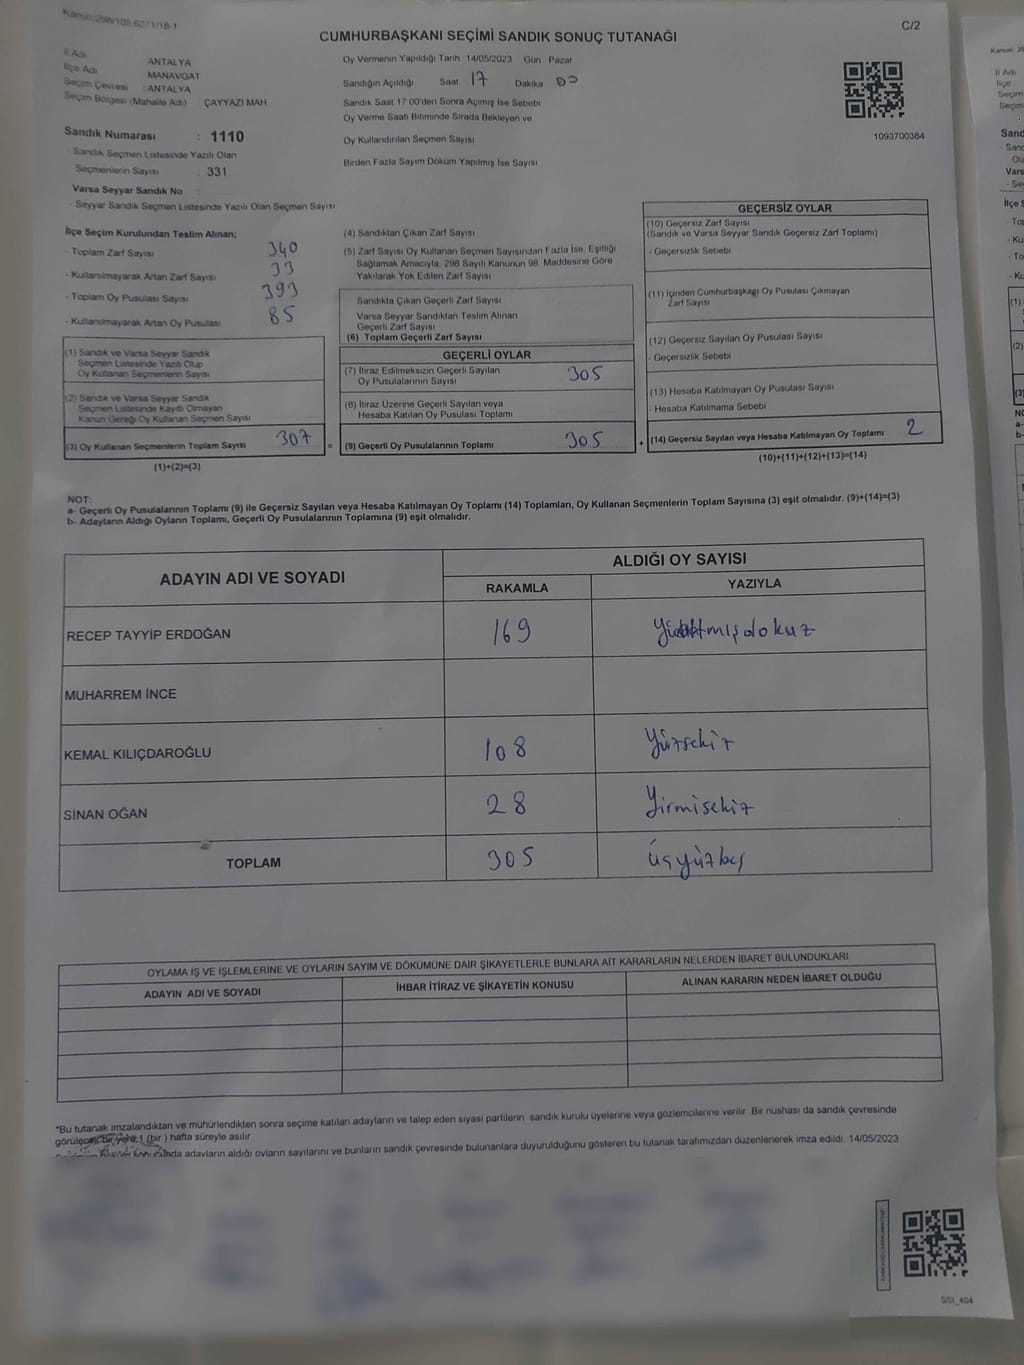 Kanun:298/105;6271/18-1
C/2
CUMHURBAŞKANI SEÇİMİ SANDIK SONUÇ TUTANAĞI
İl Adı ANTALYA
İlçe Adı MANAVGAT
Seçim Çevresi : ANTALYA
Seçim Bölgesi (Mahalle Adı) ÇAYYAZI MAH.
Sandık Numarası : 1110
- Sandık Seçmen Listesinde Yazılı Olan
Seçmenlerin Sayısı 331
Varsa Seyyar Sandık No
- Seyyar Sandık Seçmen Listesinde Yazılı Olan Seçmen Sayısı
Oy Vermenin Yapıldığı Tarih 14/05/2023 Gün Pazar
Sandığın Açıldığı Saat 17 Dakika 00
Sandık Saat 17 00'den Sonra Açımış İse Sebebi
Oy Verme Saati Bitiminde Sırada Bekleyen ve
Oy Kullandırılan Seçmen Sayısı
Birden Fazla Sayım Döküm Yapılmış İse Sayısı
1093700384
İlçe Seçim Kurulundan Teslim Alınan;
- Toplam Zarf Sayısı 340
- Kullanılmayarak Artan Zarf Sayısı 33
- Toplam Oy Pusulası Sayısı 393
- Kullanılmayarak Artan Oy Pusulası 85
(1) Sandık ve Varsa Seyyar Sandık
Seçmen Listesinde Yazılı Olup
Oy Kullanan Seçmenlerin Sayısı
(2) Sandık ve Varsa Seyyar Sandık
Seçmen Listesinde Kayıtlı Olmayan
Kanun Gereği Oy Kullanan Seçmen Sayısı
(3) Oy Kullanan Seçmenlerin Toplam Sayısı 307 =
(1)+(2)=(3)
(4) Sandıktan Çıkan Zarf Sayısı
(5) Zarf Sayısı Oy Kullanan Seçmen Sayısından Fazla İse, Eşitliği
Sağlamak Amacıyla, 298 Sayılı Kanunun 98. Maddesine Göre
Yakılarak Yok Edilen Zarf Sayısı
Sandıkta Çıkan Geçerli Zarf Sayısı
Varsa Seyyar Sandıktan Teslim Alınan
Geçerli Zarf Sayısı
(6) Toplam Geçerli Zarf Sayısı
GEÇERLİ OYLAR
(7) İtiraz Edilmeksizin Geçerli Sayılan
Oy Pusulalarının Sayısı 305
(8) İtiraz Üzerine Geçerli Sayılan veya
Hesaba Katılan Oy Pusulası Toplamı
(9) Geçerli Oy Pusulalarının Toplamı 305 +
GEÇERSİZ OYLAR
(10) Geçersiz Zarf Sayısı
(Sandık ve Varsa Seyyar Sandık Geçersiz Zarf Toplamı)
- Geçersizlik Sebebi
(11) İçinden Cumhurbaşkanı Oy Pusulası Çıkmayan
Zarf Sayısı
(12) Geçersiz Sayılan Oy Pusulası Sayısı
- Geçersizlik Sebebi
(13) Hesaba Katılmayan Oy Pusulası Sayısı
- Hesaba Katılmama Sebebi
(14) Geçersiz Sayılan veya Hesaba Katılmayan Oy Toplamı 2
(10)+(11)+(12)+(13)=(14)
NOT:
a- Geçerli Oy Pusulalarının Toplamı (9) ile Geçersiz Sayılan veya Hesaba Katılmayan Oy Toplamı (14) Toplamları, Oy Kullanan Seçmenlerin Toplam Sayısına (3) eşit olmalıdır. (9)+(14)=(3)
b- Adayların Aldığı Oyların Toplamı, Geçerli Oy Pusulalarının Toplamına (9) eşit olmalıdır.
ADAYIN ADI VE SOYADI
ALDIĞI OY SAYISI
RAKAMLA YAZIYLA
RECEP TAYYİP ERDOĞAN 169
MUHARREM İNCE
KEMAL KILIÇDAROĞLU 108 Yüzsekiz
SİNAN OĞAN 28 Yirmisekiz
TOPLAM 305 Üçyüzbeş
OYLAMA İŞ VE İŞLEMLERİNE VE OYLARIN SAYIM VE DÖKÜMÜNE DAİR ŞİKAYETLERLE BUNLARA AİT KARARLARIN NELERDEN İBARET BULUNDUKLARI
ADAYIN ADI VE SOYADI
İHBAR İTİRAZ VE ŞİKAYETİN KONUSU
ALINAN KARARIN NEDEN İBARET OLDUĞU
*Bu tutanak imzalandıktan ve mühürlendikten sonra seçime katılan adayların ve talep eden siyasi partilerin sandık kurulu üyelerine veya gözlemcilerine verilir. Bir nüshası da sandık çevresinde
görülecek bir yere 1 (bir ) hafta süreyle asılır.
adayların aldığı oyların sayılarını ve bunların sandık çevresinde bulunanlara duyurulduğunu gösteren bu tutanak tarafımızdan düzenlenerek imza edildi. 14/05/2023
GSI_404